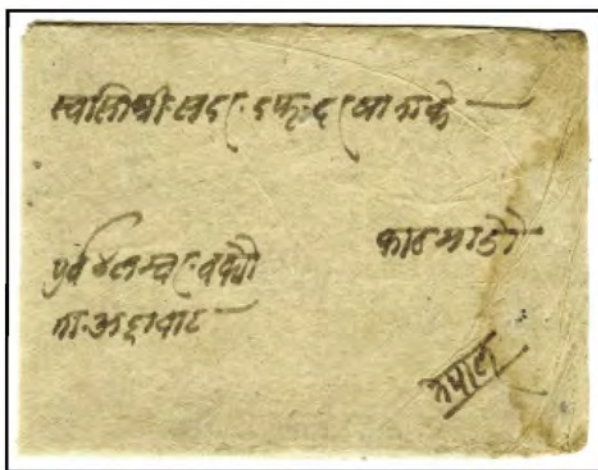 स्वस्तिश्री सदर दफ्दरखानाके
काठमाडौ
पुर्व ४ लम्वर
अड्डावाट
नेपाल